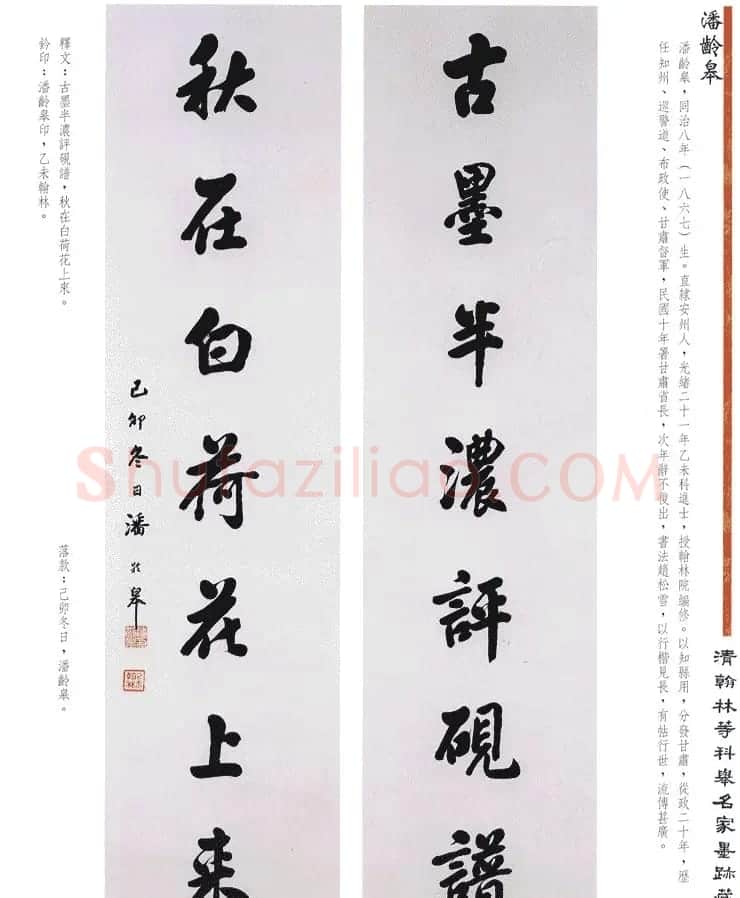 潘齡皋
潘齡皋，同治八年（一八六七）生。直隸安州人，光緒二十一年乙未科進士，授翰林院編修。以知縣用，分發甘肅，從政二十年，歷
任知州、巡警道、布政使、甘肅督軍，民國十年署甘肅省長，次年辭不復出，書法趙松雪，以行楷見長，有帖行世，流傳甚廣。
清翰林等科舉名家墨跡
古墨半濃評硯譜
秋在白荷花上来
己卯冬日潘齡皋
釋文：古墨半濃評硯譜，秋在白荷花上來。
鈐印：潘齡皋印，乙未翰林。
落款：己卯冬日，潘齡皋。
Shufaziliao.COM